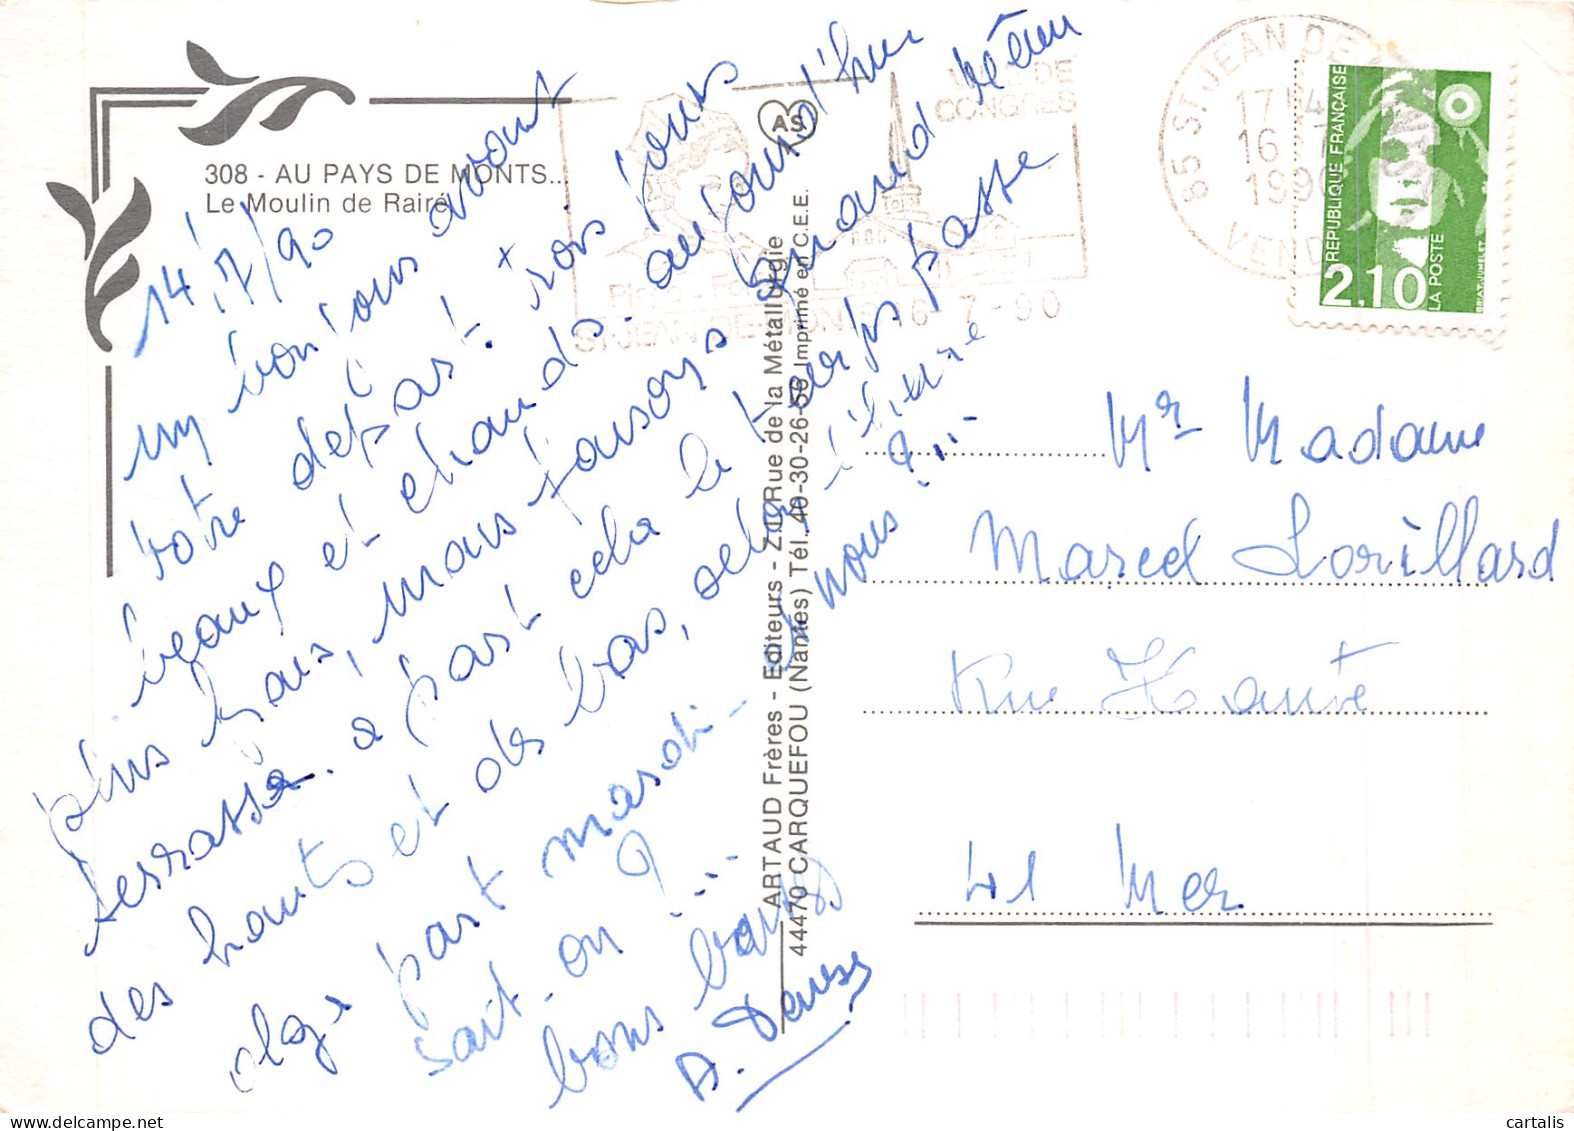 308 - AU PAYS DE MONTS...
Le Moulin de Rairé
14/7/90
un bonjour avant
votre départ ! trois jours
beaux et chauds - aujourd'hui
plus frais, mais faisons grand
terrasse. a part cela le temps passe
des hauts et des bas, selon l'heure
olga part mardi - et nous ? ...
sait-on ? ...
bons baisers
A. Denise
ARTAUD Frères - Editeurs - Z.I. Rue de la Métallurgie
44470 CARQUEFOU (Nantes) Tél. 40-30-26-56 Imprimé en C.E.E.
AS
VILLE DE
CONGRES
ST-JEAN-DE-MONTS 16-7-90
85 ST JEAN DE MONTS
17H
16 7
1990
VENDEE
REPUBLIQUE FRANÇAISE
2,10
LA POSTE
BRIAT.JUMELET
Mr Madame
Marcel Lorillard
Rue Haute
41 Mer